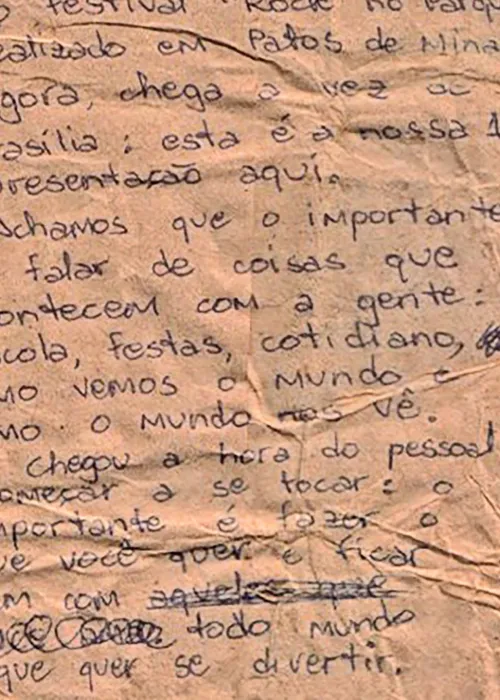 o festival "Rock no Parqu
ealizado em Patos de Mina
gora, chega a vez de
rasília: esta é a nossa 1
presentação aqui.
Achamos que o importante
falar de coisas que
ontecem com a gente:
scola, festas, cotidiano,
mo vemos o mundo e
mo o mundo nos vê.
chegou a hora do pessoal
omeçar a se tocar: o
mportante é fazer o
ue você quer e ficar
m com aqueles que
todo mundo
que quer se divertir.